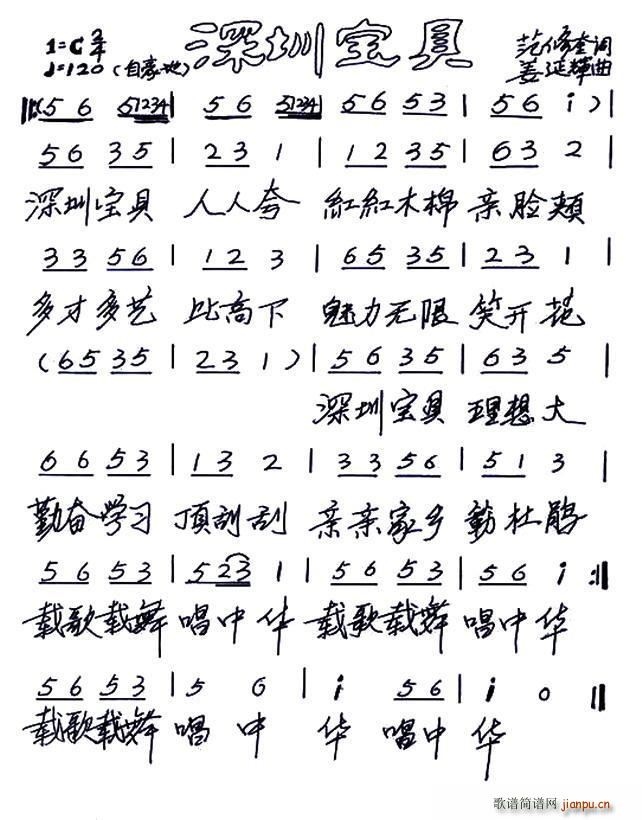 深圳宝贝
1=C 2/4
♩=120 (自豪地)
范修奎词
姜延辉曲
‖:(56 51234 | 56 51234 | 56 53 | 56 i ) |
56 35 | 23 1 | 12 35 | 63 2 |
深圳宝贝 人人夸 红红木棉 亲脸颊
33 56 | 12 3 | 65 35 | 23 1 |
多才多艺 比高下 魅力无限 笑开花
(65 35 | 23 1 ) | 56 35 | 63 5 |
深圳宝贝 理想大
66 53 | 13 2 | 33 56 | 51 3 |
勤奋学习 顶刮刮 亲亲家乡 簕杜鹃
56 53 | 523 1 | 56 53 | 56 i :‖
载歌载舞 唱中华 载歌载舞 唱中华
56 53 | 5 6 | i 56 | i 0 ‖
载歌载舞 唱 中 华 唱中 华
歌谱简谱网 jianpu.cn